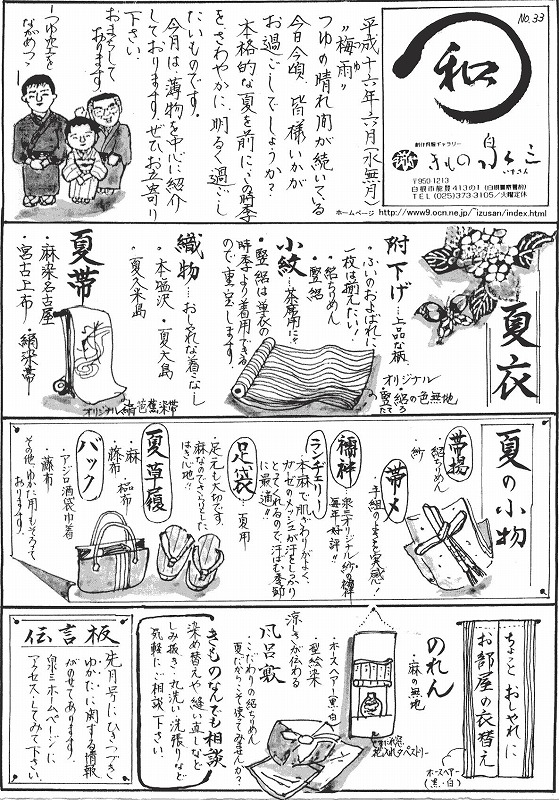 No.33
和
創作呉服ギャラリー
きもの 泉三
いずさん
〒950-1213
白根市能登413の1(白根郵便局前)
TEL(025)373-3105/火曜定休
ホームページ http://www9.ocn.ne.jp/˜izusan/index.html
平成十六年六月(水無月)
"梅雨"
つゆ
つゆの晴れ間が続いている
今日今頃、皆様いかが
お過ごしでしょうか?
本格的な夏を前に、この時季
をさわやかに、明るく過ごし
たいものです。
今月は薄物を中心に紹介
しております。ぜひお立寄り
下さい。
おまちして
おります。
つゆ空を
ながめつつ
夏衣
附下げ…上品な柄、
・ふいのおよばれに、
一枚は揃えたい!
・絽ちりめん
・竪絽
小紋…茶席用に
・竪絽は単衣の
時季より着用できる
ので重宝します。
オリジナル
・竪絽の色無地
たてろ
織物…おしゃれな着こなし
・本塩沢・夏大島
・夏久米島
夏帯
・麻染名古屋
・宮古上布・絹染帯
オリジナル絹芭蕉染帯
夏の小物
帯揚
絽ちりめん
紗
帯〆
・手組のよさを実感!
襦袢
泉三オリジナル紗の襦袢
毎年好評!!
ランヂェリー
・本麻で肌ざわりがよく、
ガゼのメッシュが汗をしっかり
とってくれるので、汗ばむ季節
に最適!!
足袋…夏用
・足元も大切です。
麻なのでさらりとした
はき心地!?
夏草履
・麻 ・桜布
・藤布
バック
・アジロ酒袋巾着
・藤布
その他、ゆかた用もそろって
おります。
ちょっとおしゃれに
お部屋の衣替え
ホースヘアー
(黒・白)
のれん
・麻の無地
・ホースヘアー(黒・白)
・型絵染
涼しさが伝わる
花入れタペストリー
風呂敷
・こだわりの絽ちりめん
夏だからこそ使ってみませんか?
きものなんでも相談
染め替えや縫い直しなど
しみ抜き・丸洗い・洗張りなど
気軽にご相談下さい。
伝言板
先月号にひきつづき
ゆかたに関する情報
がのせてあります。
泉三ホームページに
アクセスしてみて下さい。